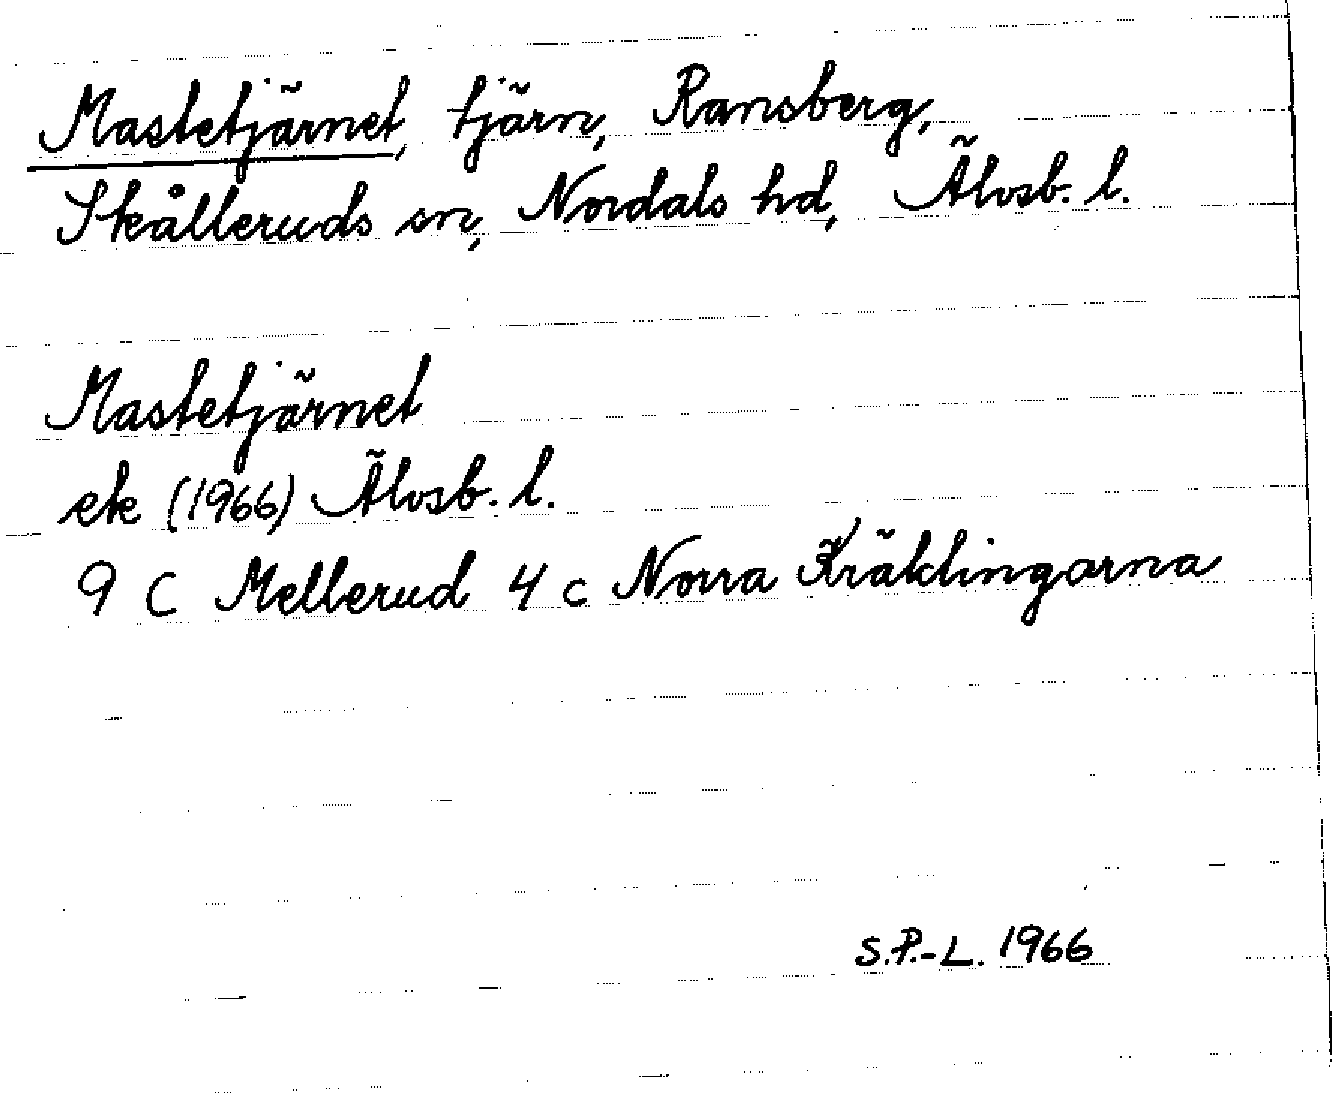 Mastetjärnet, tjärn, Ransberg,
Skålleruds sn, Nordals hd, Älvsb. l.
Mastetjärnet
ek (1966) Älvsb. l.
9 C Mellerud 4 c Norra Kräklingarna
S.P.-L. 1966